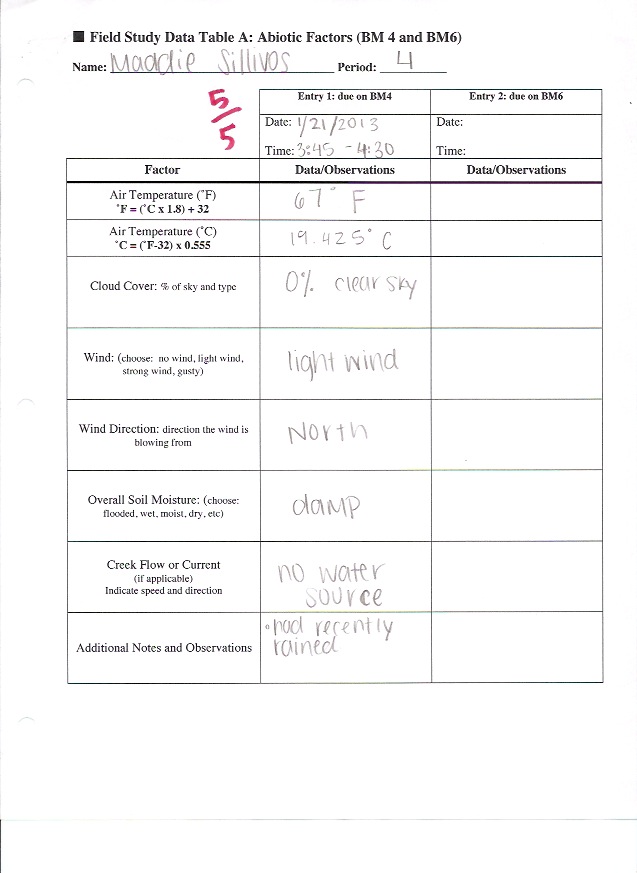 ■ Field Study Data Table A: Abiotic Factors (BM 4 and BM6)
Name: Maddie Sillivos Period: 4
5/5
Entry 1: due on BM4 Entry 2: due on BM6
Date: 1/21/2013 Date:
Time: 3:45 - 4:30 Time:
Factor Data/Observations Data/Observations
Air Temperature (˚F) 67° F
˚F = (˚C x 1.8) + 32
Air Temperature (˚C) 19.425° C
˚C = (˚F-32) x 0.555
Cloud Cover: % of sky and type 0% clear sky
Wind: (choose: no wind, light wind, light wind
strong wind, gusty)
Wind Direction: direction the wind is North
blowing from
Overall Soil Moisture: (choose: damp
flooded, wet, moist, dry, etc)
Creek Flow or Current no water
(if applicable) source
Indicate speed and direction
Additional Notes and Observations •had recently
rained